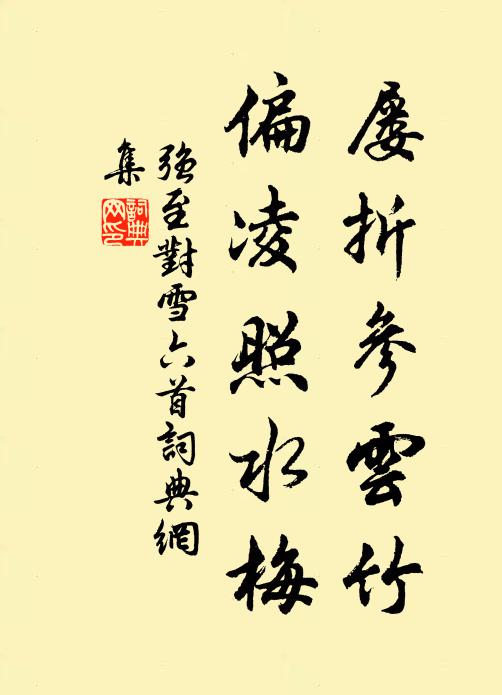 屡折參雲竹
偏凌照水梅
强至對雪六首詞典網
集
詞典網印